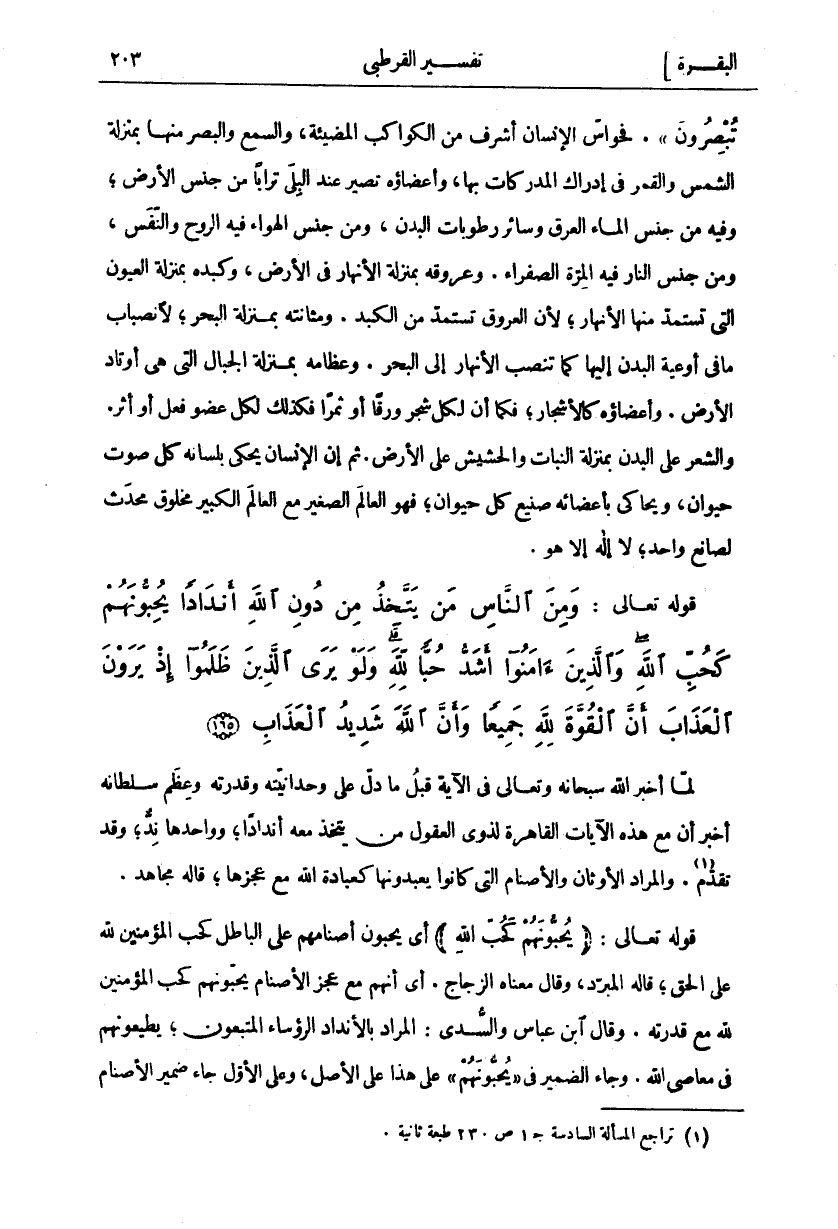 البقرة ] تفسير القرطبي ٢٠٣
تُبْصِرُونَ » . فحواسّ الإنسان أشرف من الكواكب المضيئة، والسمع والبصر منها بمنزلة
الشمس والقمر فى إدراك المدركات بها، وأعضاؤه تصير عند البِلَى ترابًا من جنس الأرض ؛
وفيه من جنس الماء العرق وسائر رطوبات البدن ، ومن جنس الهواء فيه الروح والنَّفَس ،
ومن جنس النار فيه المِرّة الصفراء . وعروقه بمنزلة الأنهار فى الأرض ، وكبده بمنزلة العيون
التى تستمدّ منها الأنهار ؛ لأن العروق تستمدّ من الكبد . ومثانته بمنزلة البحر ؛ لآنصباب
مافى أوعية البدن إليها كما تنصب الأنهار إلى البحر . وعظامه بمنزلة الجبال التى هى أوتاد
الأرض . وأعضاؤه كالأشجار؛ فكما أن لكل شجر ورقًا أو ثمرًا فكذلك لكل عضو فعل أو أثر.
والشعر على البدن بمنزلة النبات والحشيش على الأرض.ثم إن الإنسان يحكى بلسانه كل صوت
حيوان، ويحاكى بأعضائه صنيع كل حيوان؛ فهو العالَم الصغير مع العالَم الكبير مخلوق محدَث
لصانع واحد؛ لا إله إلا هو .
قوله تعالى : وَمِنَ ٱلنَّاسِ مَن يَتَّخِذُ مِن دُونِ ٱللَّهِ أَندَادًا يُحِبُّونَهُمْ
كَحُبِّ ٱللَّهِ ۖ وَٱلَّذِينَ ءَامَنُوٓا أَشَدُّ حُبًّا لِّلَّهِ ۗ وَلَوْ يَرَى ٱلَّذِينَ ظَلَمُوٓا إِذْ يَرَوْنَ
ٱلْعَذَابَ أَنَّ ٱلْقُوَّةَ لِلَّهِ جَمِيعًا وَأَنَّ ٱللَّهَ شَدِيدُ ٱلْعَذَابِ ١٦٥
لمّا أخبر الله سبحانه وتعالى فى الآية قبلُ ما دلّ على وحدانيّته وقدرته وعِظَم سلطانه
أخبر أن مع هذه الآيات القاهرة لذوى العقول من يتّخذ معه أندادًا؛ وواحدها نِدٌّ؛ وقد
تقدّم (١) . والمراد الأوثان والأصنام التى كانوا يعبدونها كعبادة الله مع عجزها ؛ قاله مجاهد .
قوله تعالى : ﴿ يُحِبُّونَهُمْ كَحُبِّ اللهِ ﴾ أى يحبون أصنامهم على الباطل كحب المؤمنين لله
على الحق؛ قاله المبرّد، وقال معناه الزجاج . أى أنهم مع عجز الأصنام يحبّونهم كحب المؤمنين
لله مع قدرته . وقال آبن عباس والسُّدى : المراد بالأنداد الرؤساء المتبعون ؛ يطيعونهم
فى معاصى الله . وجاء الضمير فى «يُحِبُّونَهُمْ» على هذا على الأصل، وعلى الأوّل جاء ضمير الأصنام
(١) تراجع المسألة السادسة جـ ١ ص ٢٣٠ طبعة ثانية .